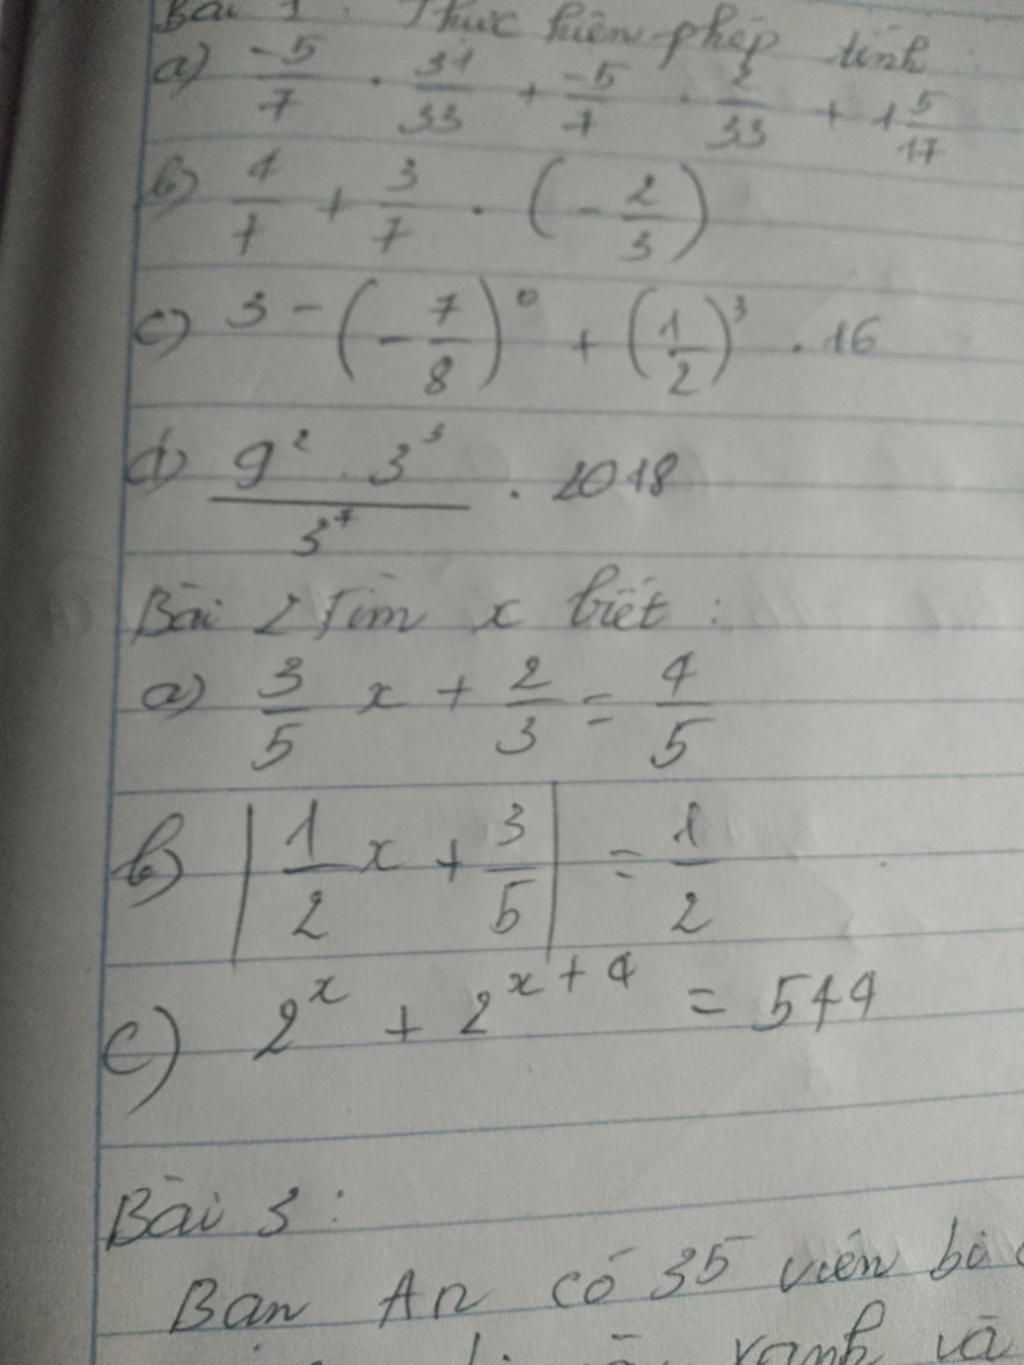 Bài 1: Thực hiện phép tính:
a) \frac{-5}{7} . \frac{31}{33} + \frac{-5}{7} . \frac{2}{33} + 1\frac{5}{17}
b) \frac{4}{7} + \frac{3}{7} . (-\frac{2}{3})
c) 3 - (-\frac{7}{8})^0 + (\frac{1}{2})^3 . 16
d) \frac{9^2 . 3^3}{3^7} . 2018
Bài 2 Tìm x biết:
a) \frac{3}{5} x + \frac{2}{3} = \frac{4}{5}
b) |\frac{1}{2}x + \frac{3}{5}| = \frac{1}{2}
c) 2^x + 2^{x+4} = 544
Bài 3:
Bạn An có 35 viên bi
xanh và